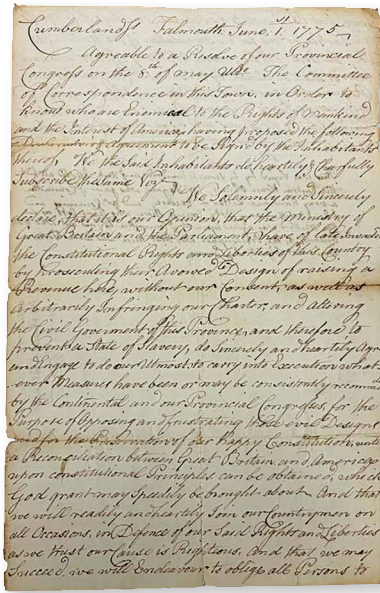 Cumberland Ss Falmouth June 1st 1775
Agreable to a Resolve of our Provincial
Congress on the 8th of may Ulto. The Committee
of Correspondence in this Town, in Order to
know who are Enemical to the Rights of mankind
and the Interest of America, having proposed the following
Declaration & Agreement to be Signed by the Inhabitants
thereof, We the Said Inhabitants do heartily & Chearfully
Subscribe the Same Viz
We Solemnly and sincerely
declare, that it is our Opinion, that the ministry of
Great Britain and the Parliament, have of late Invaded
the Constitutional Rights and Liberties of this Country
by prosecuting their Avowed Design of raising a
Revenue here, without our Consent, as well as
Arbitrarily Infringing our Charter, and altering
the Civil Goverment of this Province, and therefore to
prevent a State of Slavery, do Sincerely and heartily Agree
and Engage to do our Utmost, to carry into execution what-
ever Measures have been or may be consistently recomm
by the Continental and our Provincial Congresses, for the
Purpose of Opposing and frustrating those evil Designs
and for the Preservation of our happy Constitution, until
a Reconciliation between Great Britain and America
upon constitutional Principles can be obtained, which
God grant may Speedily be brought about. And that
we will readily and heartily Join our Countrymen on
all Occasions, in Defence of our Said Rights and Liberties
as we trust our Cause is Righteous, And that we may
Succeed, we will Endeavour to oblige all Persons to